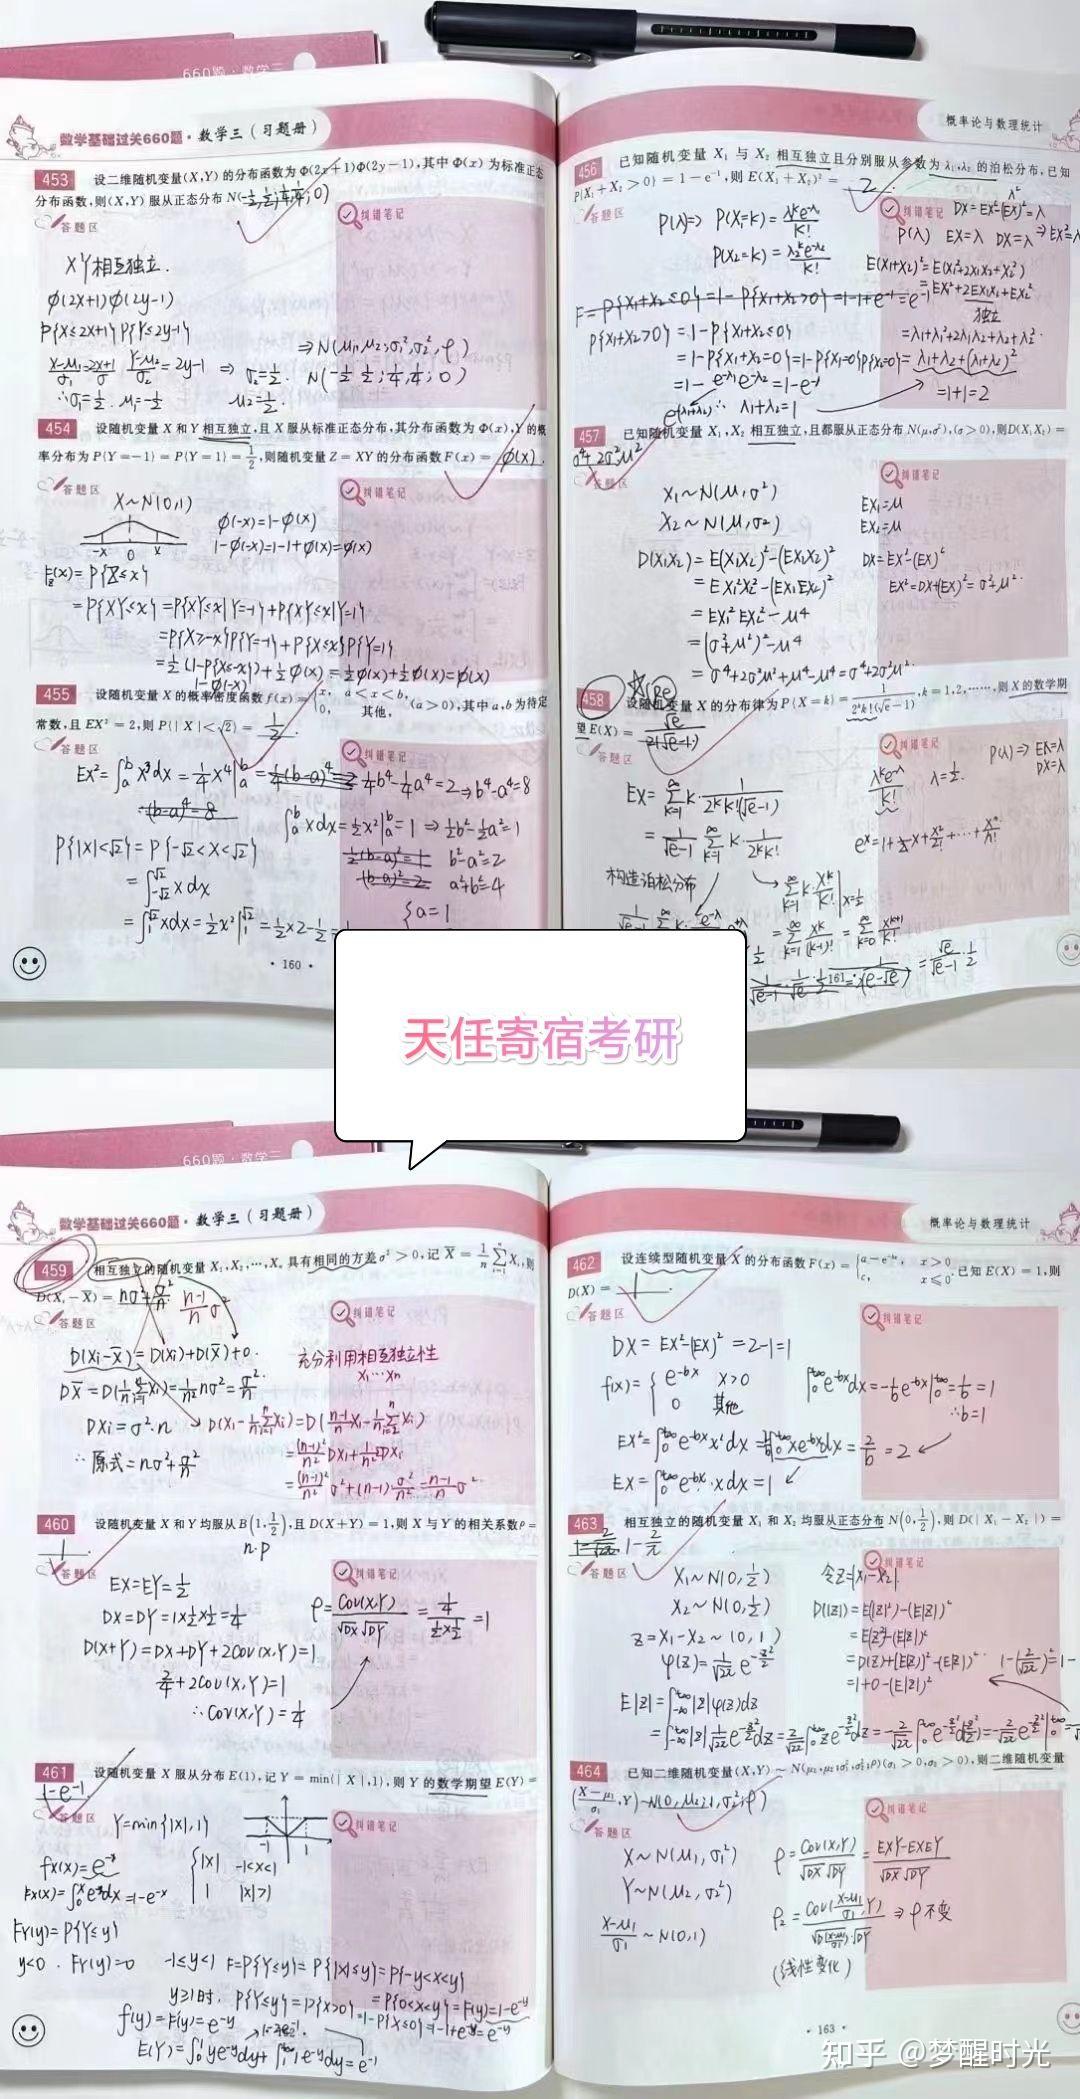 660题·数学三
数学基础过关660题·数学三（习题册）
453 设二维随机变量(X,Y)的分布函数为Φ(2x+1)Φ(2y-1),其中Φ(x)为标准正态
分布函数,则(X,Y)服从正态分布N(-½,½;¼,¼;0)
答题区
纠错笔记
XY相互独立.
φ(2X+1)φ(2y-1)
P{X≤2x+1}P{Y≤2y-1}
⇒N(μ1,μ2;σ1²,σ2²,ρ)
⇒ σ2=½. N(-½ ½;¼,¼;0)
∴σ1=½. μ1=-½ μ2=½.
454 设随机变量X和Y相互独立,且X服从标准正态分布,其分布函数为Φ(x),Y的概
率分布为P{Y=-1}=P{Y=1}=½,则随机变量Z=XY的分布函数F(x)= φ(x).
答题区
纠错笔记
X~N(0,1)
φ(-x)=1-φ(x)
1-φ(-x)=1-1+φ(x)=φ(x)
-x 0 x
F_Z(x)=P{Z≤x}
=P{XY≤x}=P{XY≤x|Y=-1}+P{XY≤x|Y=1}
=P{X≥-x}P{Y=-1}+P{X≤x}P{Y=1}
=½(1-P{X≤-x})+½φ(x)=½φ(x)+½φ(x)=φ(x)
1-φ(-x)
455 设随机变量X的概率密度函数f(x)={x, a<x<b, 0, 其他, (a>0),其中a,b为待定
常数,且EX²=2,则P{|X|<√2}= ½
答题区
纠错笔记
EX²=∫_a^b x³dx=¼x⁴|_a^b=¼(b-a)⁴=2 ¼b⁴-¼a⁴=2⇒b⁴-a⁴=8
∴(b-a)⁴=8
∫_a^b xdx=½x²|_a^b=1⇒½b²-½a²=1
P{|X|<√2}=P{-√2<X<√2}
½(b-a)²=1 b²-a²=2
(b-a)²=2 a²+b²=4
=∫_{-√2}^{√2} xdx
{a=1
=∫_1^{√2} xdx=½x²|_1^{√2}=½×2-½=
·160·
概率论与数理统计
456 已知随机变量X₁与X₂相互独立且分别服从参数为λ₁,λ₂的泊松分布,已知
P{X₁+X₂>0}=1-e⁻¹,则E(X₁+X₂)²= 2
答题区
纠错笔记
DX=EX²-(EX)²=λ
P(λ)⇒P(X=K)=λ^k e^-λ/K!
P(λ) EX=λ DX=λ
P(X2=K)=λ2^k e^-λ2/K!
E(X1+X2)²=E(X1²+2X1X2+X2²)
=EX²+2EX1X2+EX2²
独立
F=P{X1+X2≤0}=1-P{X1+X2>0}=1-1+e⁻¹=e⁻¹
P{X1+X2>0}=1-P{X1+X2≤0}
=λ1+λ1²+2λ1λ2+λ2+λ2²
=1-P{X1+X2=0}=1-P{X1=0}P{X2=0}
=λ1+λ2+(λ1+λ2)²
=1-e^-λ1 e^-λ2=1-e⁻¹
=1+1=2
∴λ1+λ2=1
457 已知随机变量X₁,X₂相互独立,且都服从正态分布N(μ,σ²),(σ>0),则D(X₁X₂)=
σ⁴+2σ²μ²
答题区
纠错笔记
X1~N(μ,σ²)
EX1=μ
X2~N(μ,σ²)
EX2=μ
D(X1X2)=E(X1X2)²-(EX1X2)²
DX=EX²-(EX)²
=EX1²X2²-(EX1EX2)²
EX²=DX+(EX)²=σ²+μ²
=EX1²EX2²-μ⁴
=(σ²+μ²)²-μ⁴
=σ⁴+2σ²μ²+μ⁴-μ⁴=σ⁴+2σ²μ²
458 设随机变量X的分布律为P{X=k}=1/(2^k k!(√e-1)),k=1,2,……,则X的数学期
望E(X)= √e/2(√e-1)
答题区
纠错笔记
P(λ)⇒EX=λ
DX=λ
λ^k e^-λ/K! λ=½.
EX=Σ_{k=1}^∞ k·1/(2^k k!(√e-1))
=1/(√e-1) Σ_{k=1}^∞ k·1/(2^k k!)
e^x=1+x+x²/2+…+x^n/n!
构造泊松分布
Σ_{k=1}^∞ k·x^k/k!|x=½
=Σ_{k=1}^∞ x^k/(k-1)!=Σ_{k=0}^∞ x^{k+1}/k!
=√e/(√e-1)·½
161
天任寄宿考研
660题·数学三
数学基础过关660题·数学三（习题册）
459 相互独立的随机变量X₁,X₂,…,Xₙ具有相同的方差σ²>0,记X̄=1/n Σ_{i=1}^n Xᵢ,则
D(X₁-X̄)= nσ²+σ²/n (n-1)/n σ²
答题区
纠错笔记
D(Xi-X̄)=D(Xi)+D(X̄)+0.
充分利用相互独立性
X1…Xn
DX̄=D(1/n ΣXi)=1/n² nσ²=σ²/n
DXi=σ²·n
D(X1-1/n ΣXi)=D((n-1)/n X1-1/n ΣXi)
∴原式=nσ²+σ²/n
=(n-1)²/n² DX1+1/n² ΣDXi
=(n-1)²/n² σ²+(n-1)σ²/n²=(n-1)/n σ²
460 设随机变量X和Y均服从B(1,½),且D(X+Y)=1,则X与Y的相关系数ρ=
1
n·p
答题区
纠错笔记
EX=EY=½
DX=DY=1×½×½=¼
ρ=Cov(X,Y)/√DX√DY=¼/(½×½)=1
D(X+Y)=DX+DY+2Cov(X,Y)=1
2/4+2Cov(X,Y)=1
∴Cov(X,Y)=¼
461 设随机变量X服从分布E(1),记Y=min{|X|,1},则Y的数学期望E(Y)=
1-e⁻¹
答题区
纠错笔记
Y=min{|X|,1}
-1 1
fX(x)=e^-x
{|X| -1<x<1
1 |X|>1
FX(x)=∫_0^x e^-x dx=1-e^-x
FY(y)=P{Y≤y}
y<0. FY(y)=0 -1≤y<1 F=P{Y≤y}=P{|X|≤y}=P{-y<x<y}
y≥1时. P{Y≤y}=P{X>0}
=P{0<x<y}=F(y)=1-e^-y
=1-P{X≤0}=1-1+e^-y=e^-y
f(y)=F'(y)=e^-y
E(Y)=∫_0^1 ye^-y dy+∫_1^{+∞} 1e^-y dy=e⁻¹
概率论与数理统计
462 设连续型随机变量X的分布函数F(x)={a-e^{-bx}, x>0, c, x≤0. 已知E(X)=1,则
D(X)= 1
答题区
纠错笔记
DX=EX²-(EX)²=2-1=1
f(x)={e^-bx x>0
0 其他
∫_0^{+∞} e^-bx dx=-1/b e^-bx|_0^{+∞}=1/b=1
∴b=1
EX²=∫_0^{+∞} e^-bx x²dx=∫_0^{+∞} xe^-bx dx=2/b=2
EX=∫_0^{+∞} e^-bx·xdx=1
463 相互独立的随机变量X₁和X₂均服从正态分布N(0,½),则D(|X₁-X₂|)=
1-2/√2π 1-2/π
答题区
纠错笔记
X1~N(0,½)
令Z=|X1-X2|.
X2~N(0,½)
D(|Z|)=E(|Z|²)-(E|Z|)²
Z=X1-X2~(0,1)
=E(Z²)-(E|Z|)²
φ(z)=1/√2π e^{-z²/2}
=D(Z)+(EZ)²-(E|Z|)² 1-(2/√2π)²=1-
=1+0-(E|Z|)²
E|Z|=∫_{-∞}^{+∞}|z|φ(z)dz
=∫_{-∞}^{+∞}|z|1/√2π e^{-z²/2}dz=2/√2π∫_0^{+∞}ze^{-z²/2}dz=-2/√2π∫_0^{+∞}e^{-z²/2}d(-z²/2)=-2/√2π e^{-z²/2}|_0^{+∞}=
464 已知二维随机变量(X,Y)~N(μ₁,μ₂;σ₁²,σ₂²;ρ)(σ₁>0,σ₂>0),则二维随机变量
((X-μ₁)/σ₁,Y)~N(0,μ2;1,σ2²;ρ)
答题区
纠错笔记
X~N(μ1,σ1²)
ρ=Cov(X,Y)/√DX√DY=EXY-EXEY/√DX√DY
Y~N(μ2,σ2²)
(X-μ1)/σ1~N(0,1)
ρ2=Cov((X-μ1)/σ1,Y)/√D((X-μ1)/σ1)·√DY⇒ρ不变
(线性变化)
·163·
知乎 @梦醒时光